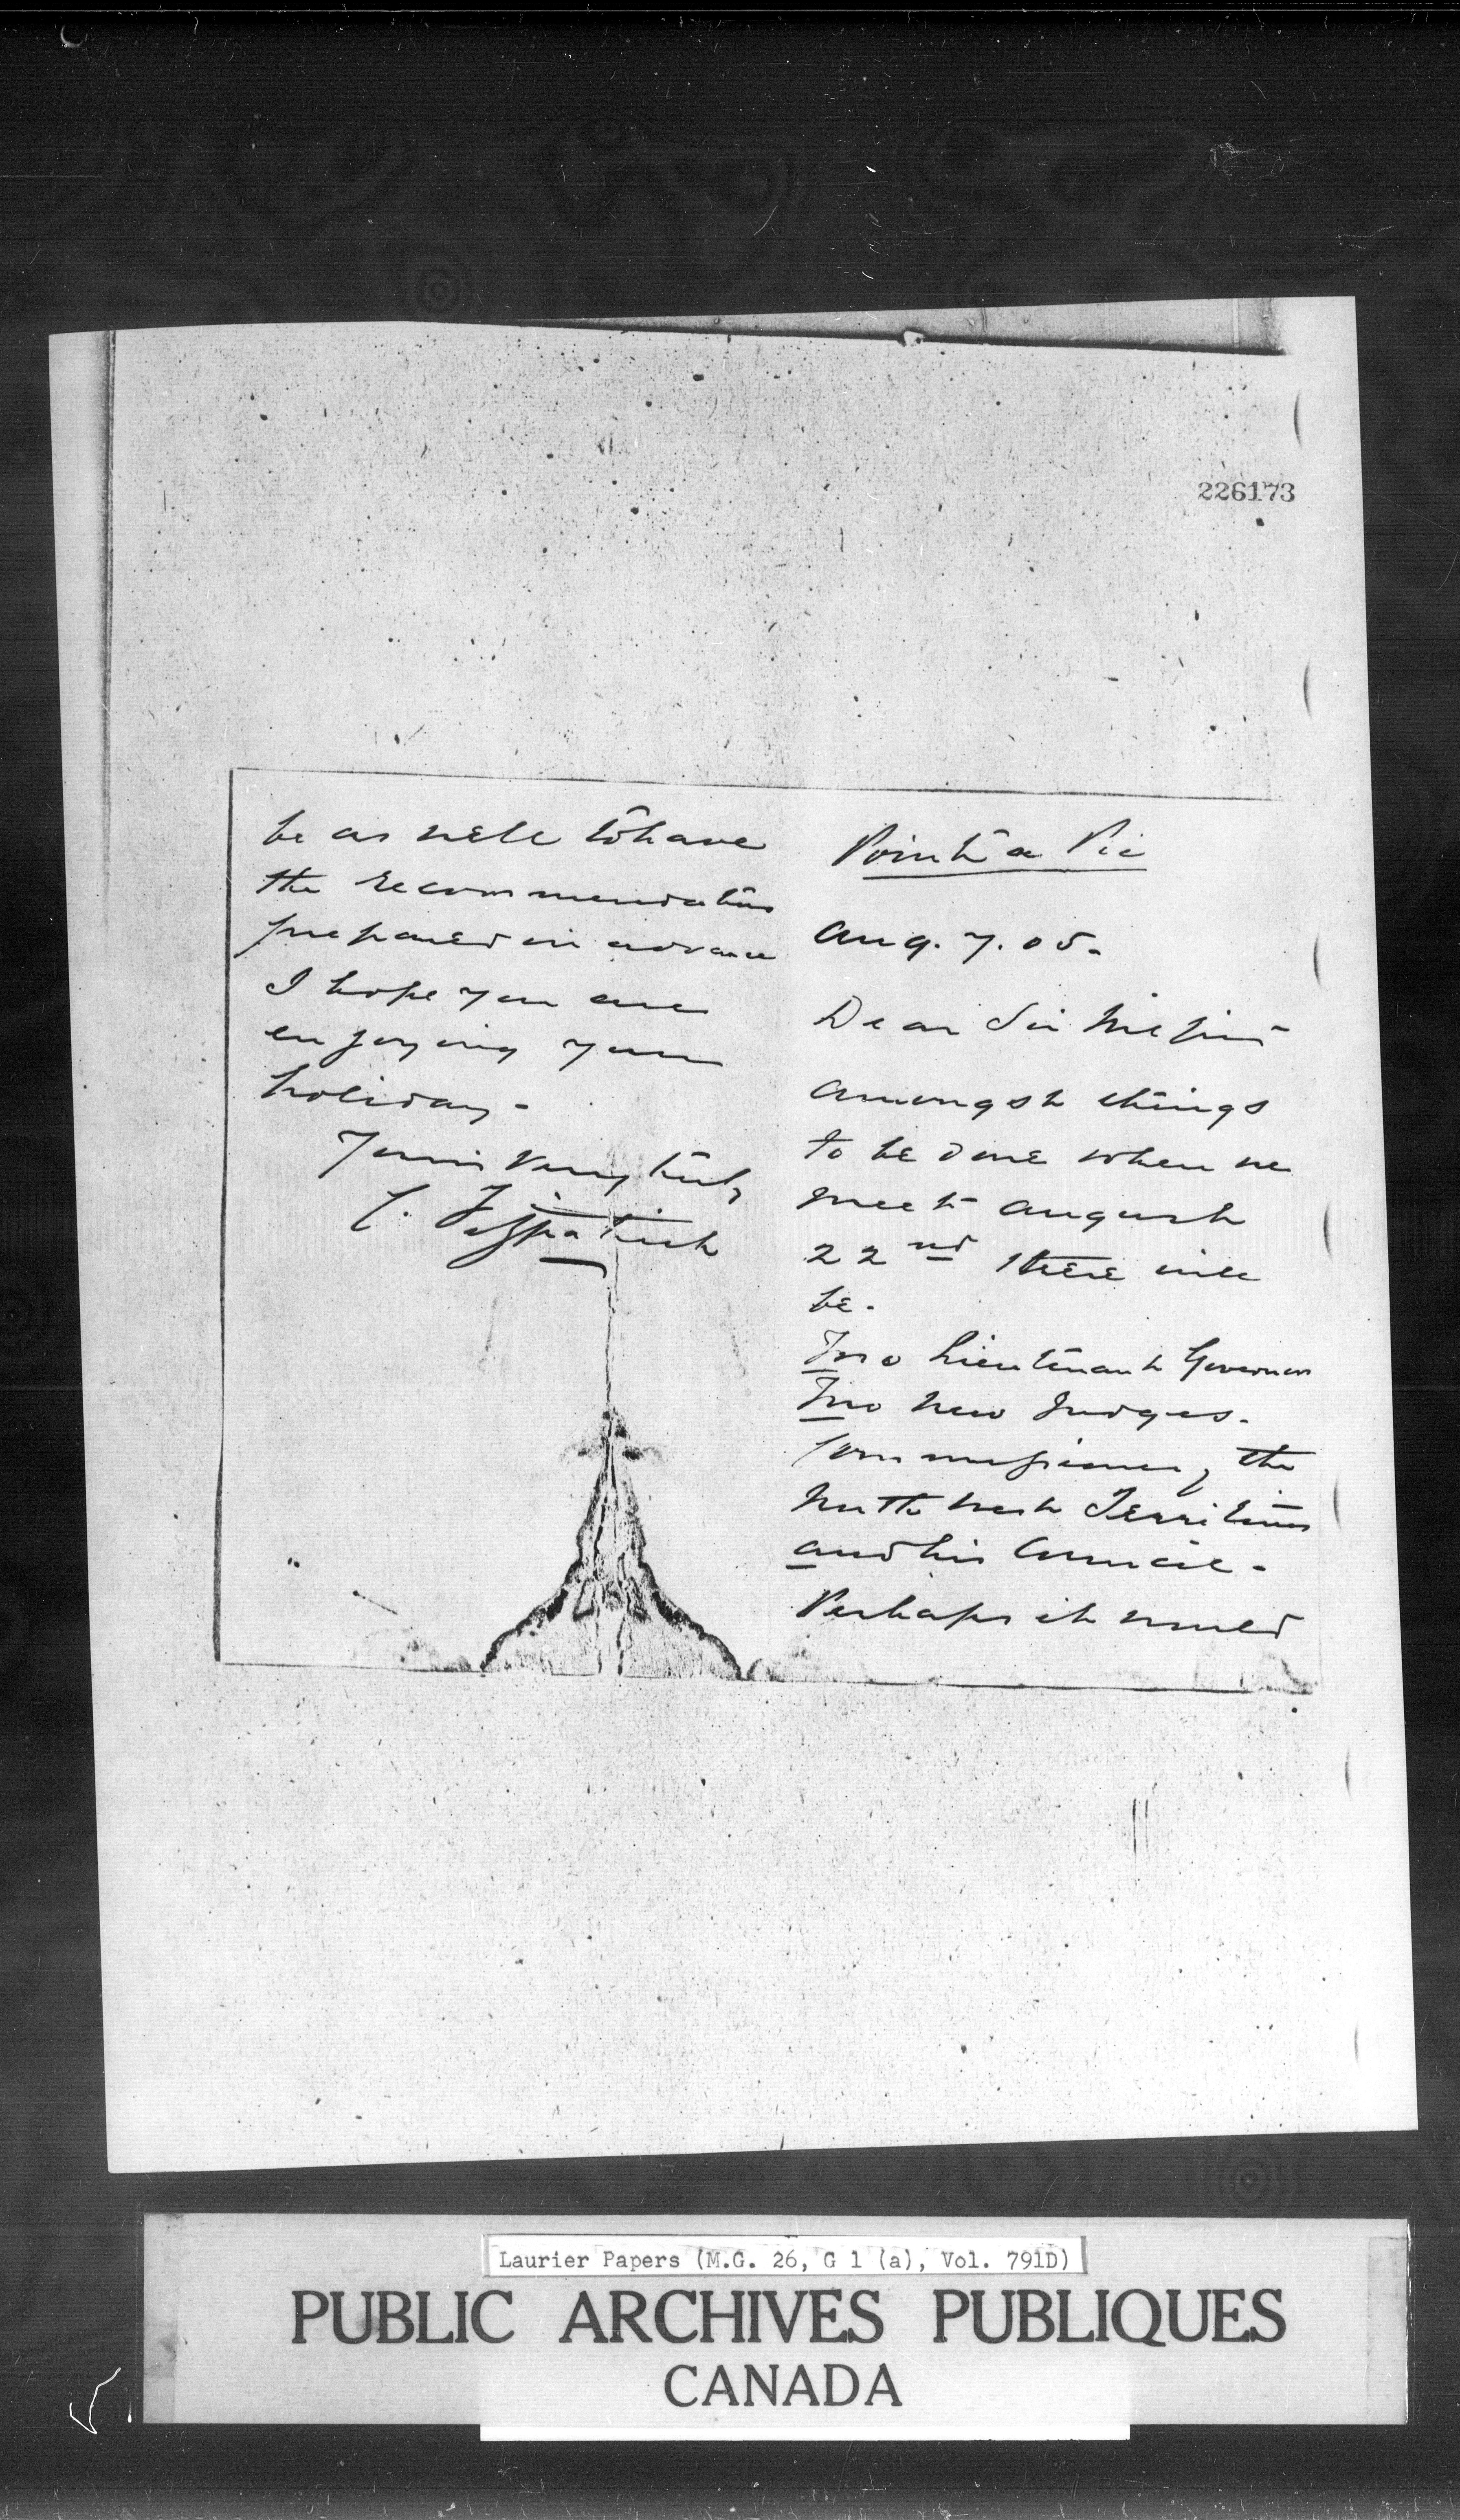 226173
Pointe a Pic
Aug. 7. 05.
Dear Sir Wilfrid
Amongst things
to be done when we
meet August
22nd there will
be.
Two Lieutenant Governors
Two new Judges.
Commissioner of the
North West Territories
and his Council.
Perhaps it would
be as well to have
the recommendations
prepared in advance
I hope you are
enjoying your
holiday.
Yours very truly
C. Fitzpatrick
Laurier Papers (M.G. 26, G 1 (a), Vol. 791D)
PUBLIC ARCHIVES PUBLIQUES
CANADA